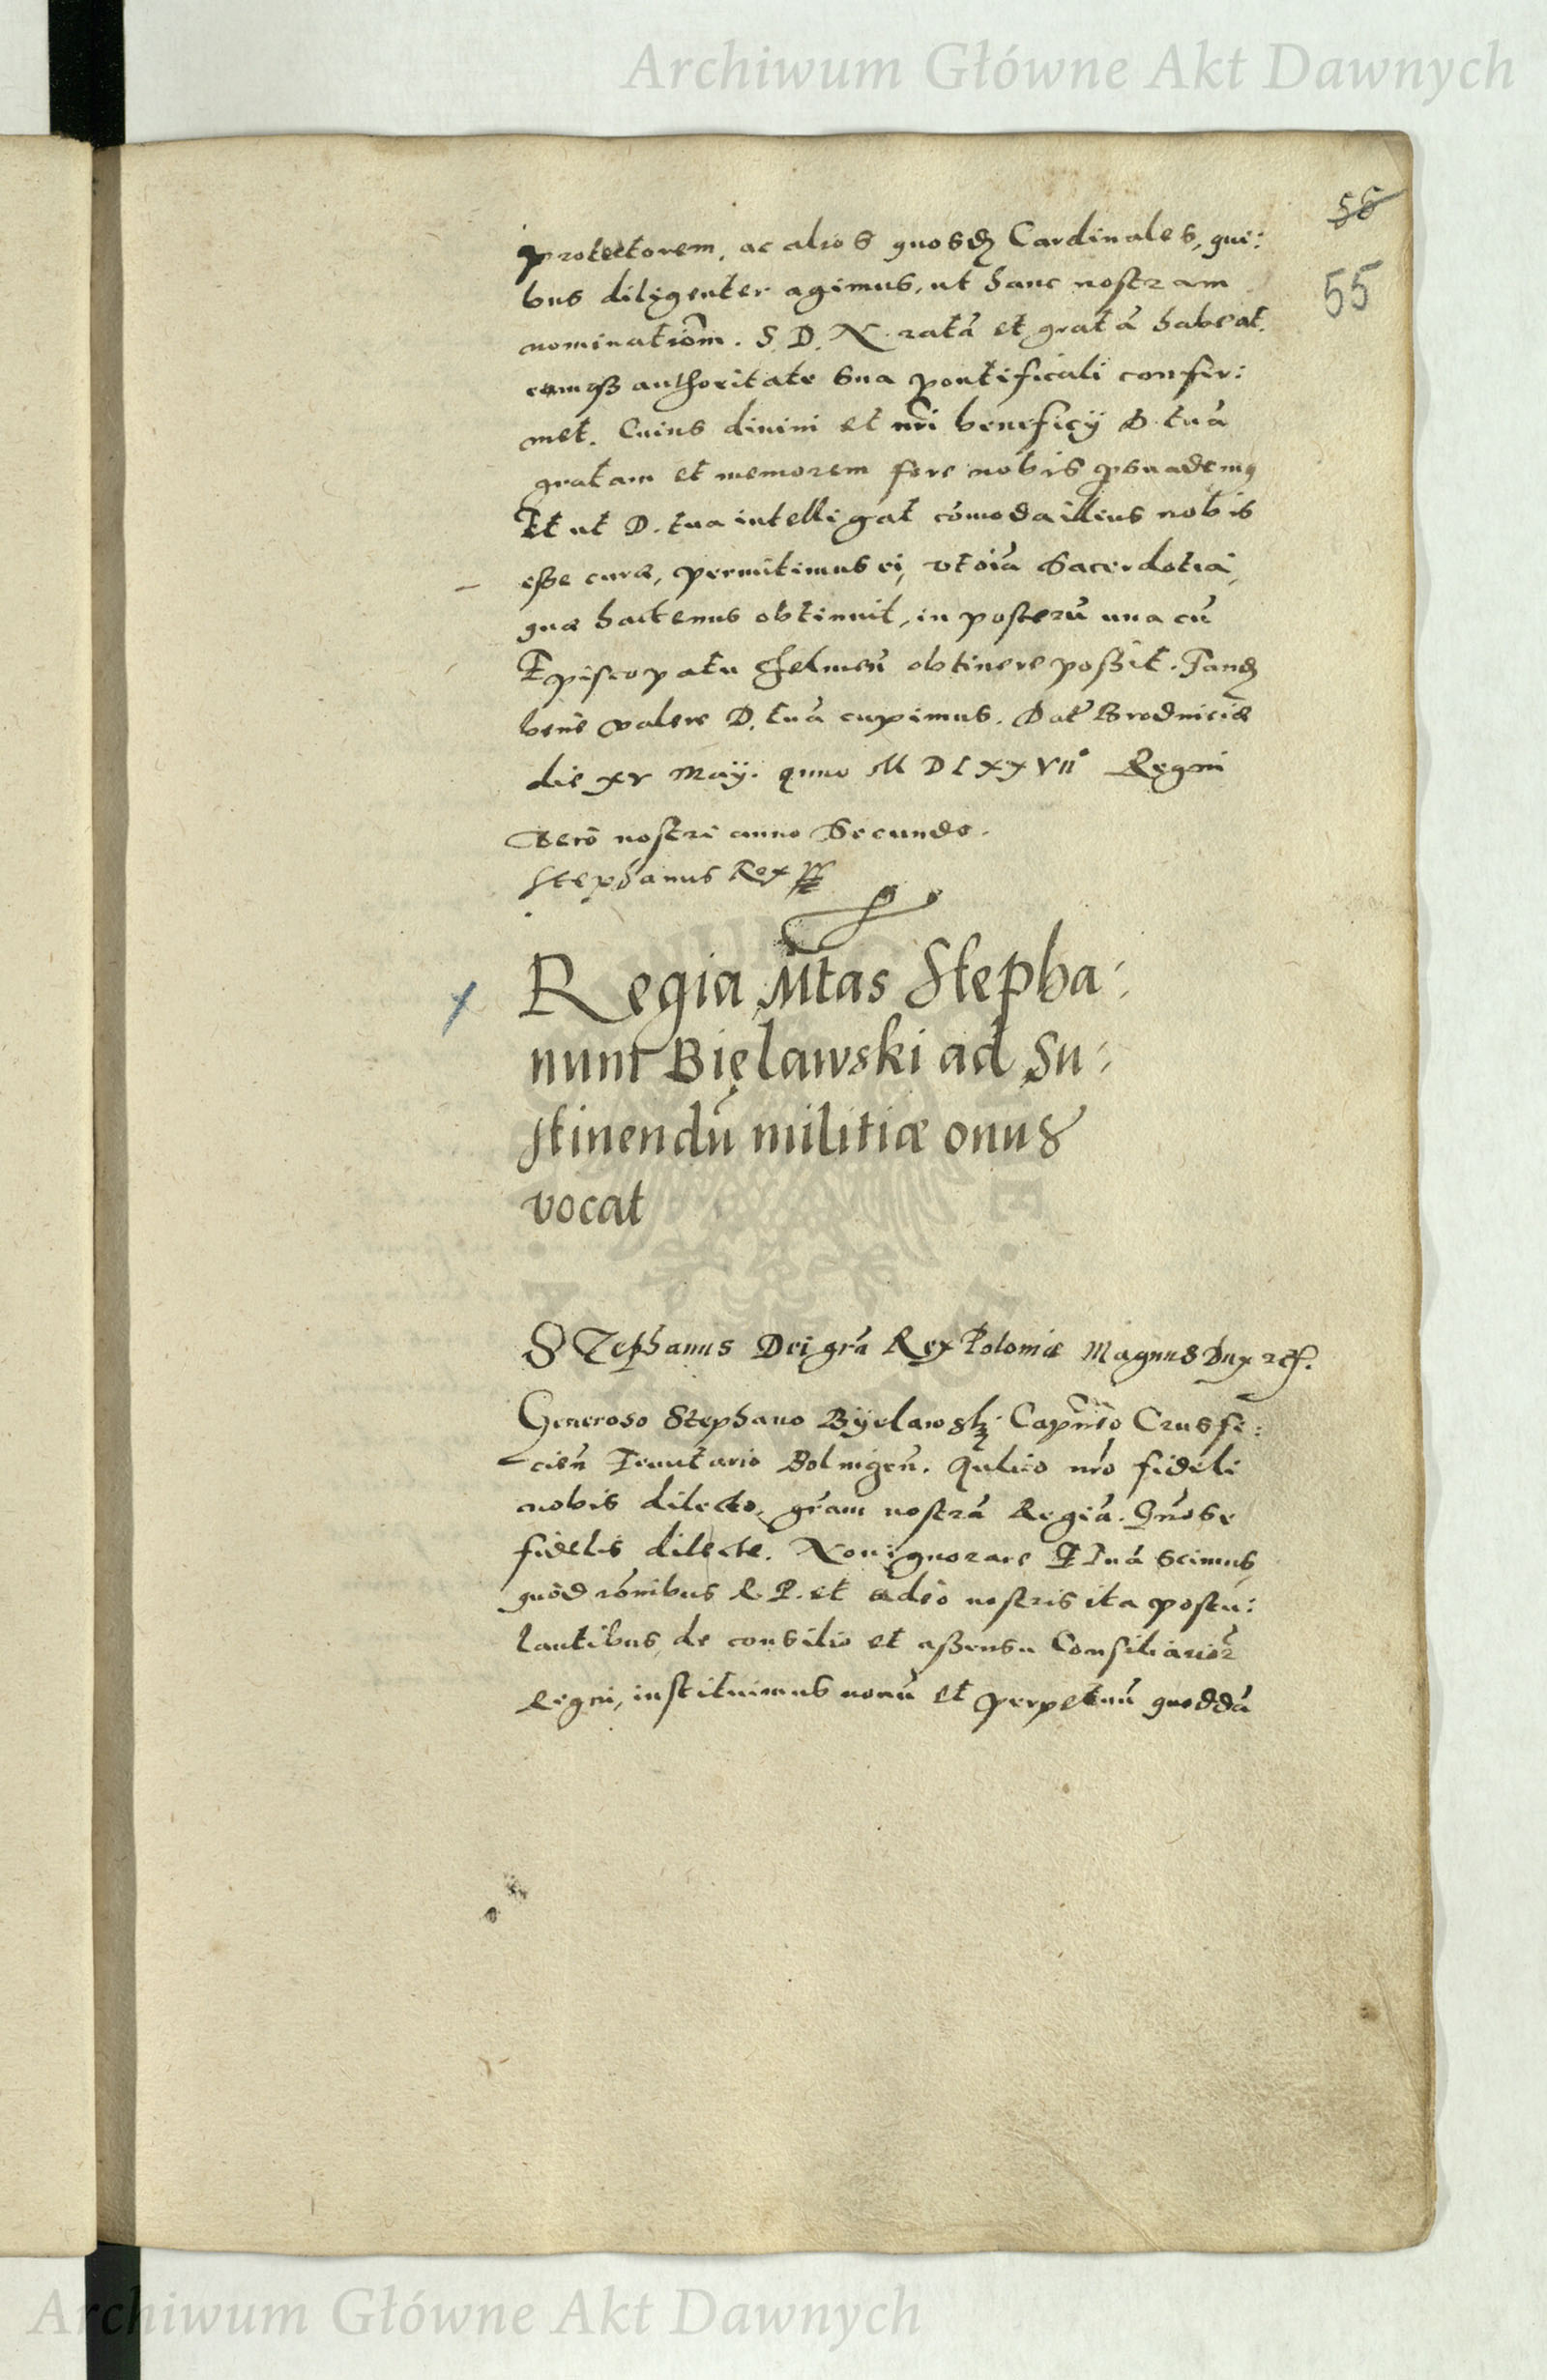 Archiwum Główne Akt Dawnych
58
55
protectorem, ac alios quosdȝ Cardinales, qui:
bus diligenter agimus, ut hanc nostram
nominatiōm. S. D. N. ratā et gratā habeat,
eamqȝ authoritate sua pontificali confir:
met. Cuius divini et nrī beneficÿ D. tuā
gratam et memorem fore nobis ꝑsuademq
Et ut D. tua intelligat cōmoda illius nobis
esse curæ, permitimus ei, vt oīa Sacerdotia,
quæ hactenus obtinuit, in posterū una cū
Episcopatu Chelmeñ obtinere possit. Tandȝ
bene valere D. tuā cupimus. Dat Brodniciæ
die xv Maÿ. anno M D L X X VII° Regni
vero nostri anno Secundo.
Stephanus Rex
Regia Mtas Stepha:
num Bięlawski ad Su:
stinendū militiæ onus
vocat
STephanus Dei grā Rex Poloniæ Magnus Dux
Generoso Stephano Bÿelawskj Capn̄eo Crusfi:
cień Tenutario Bolnigeñ. Aulico nrō fideli
nobis dilecto, grām nostrā Regiā. Gn̄ose
fidelis dilecte. Non ignorare Tuā scimus,
quod rōnibus R. P. et adeo nostris ita postu:
lantibus, de consilio et assensu Consiliarioꝝ
Regni, instituimus novū et perpetuū quoddā
Archiwum Główne Akt Dawnych